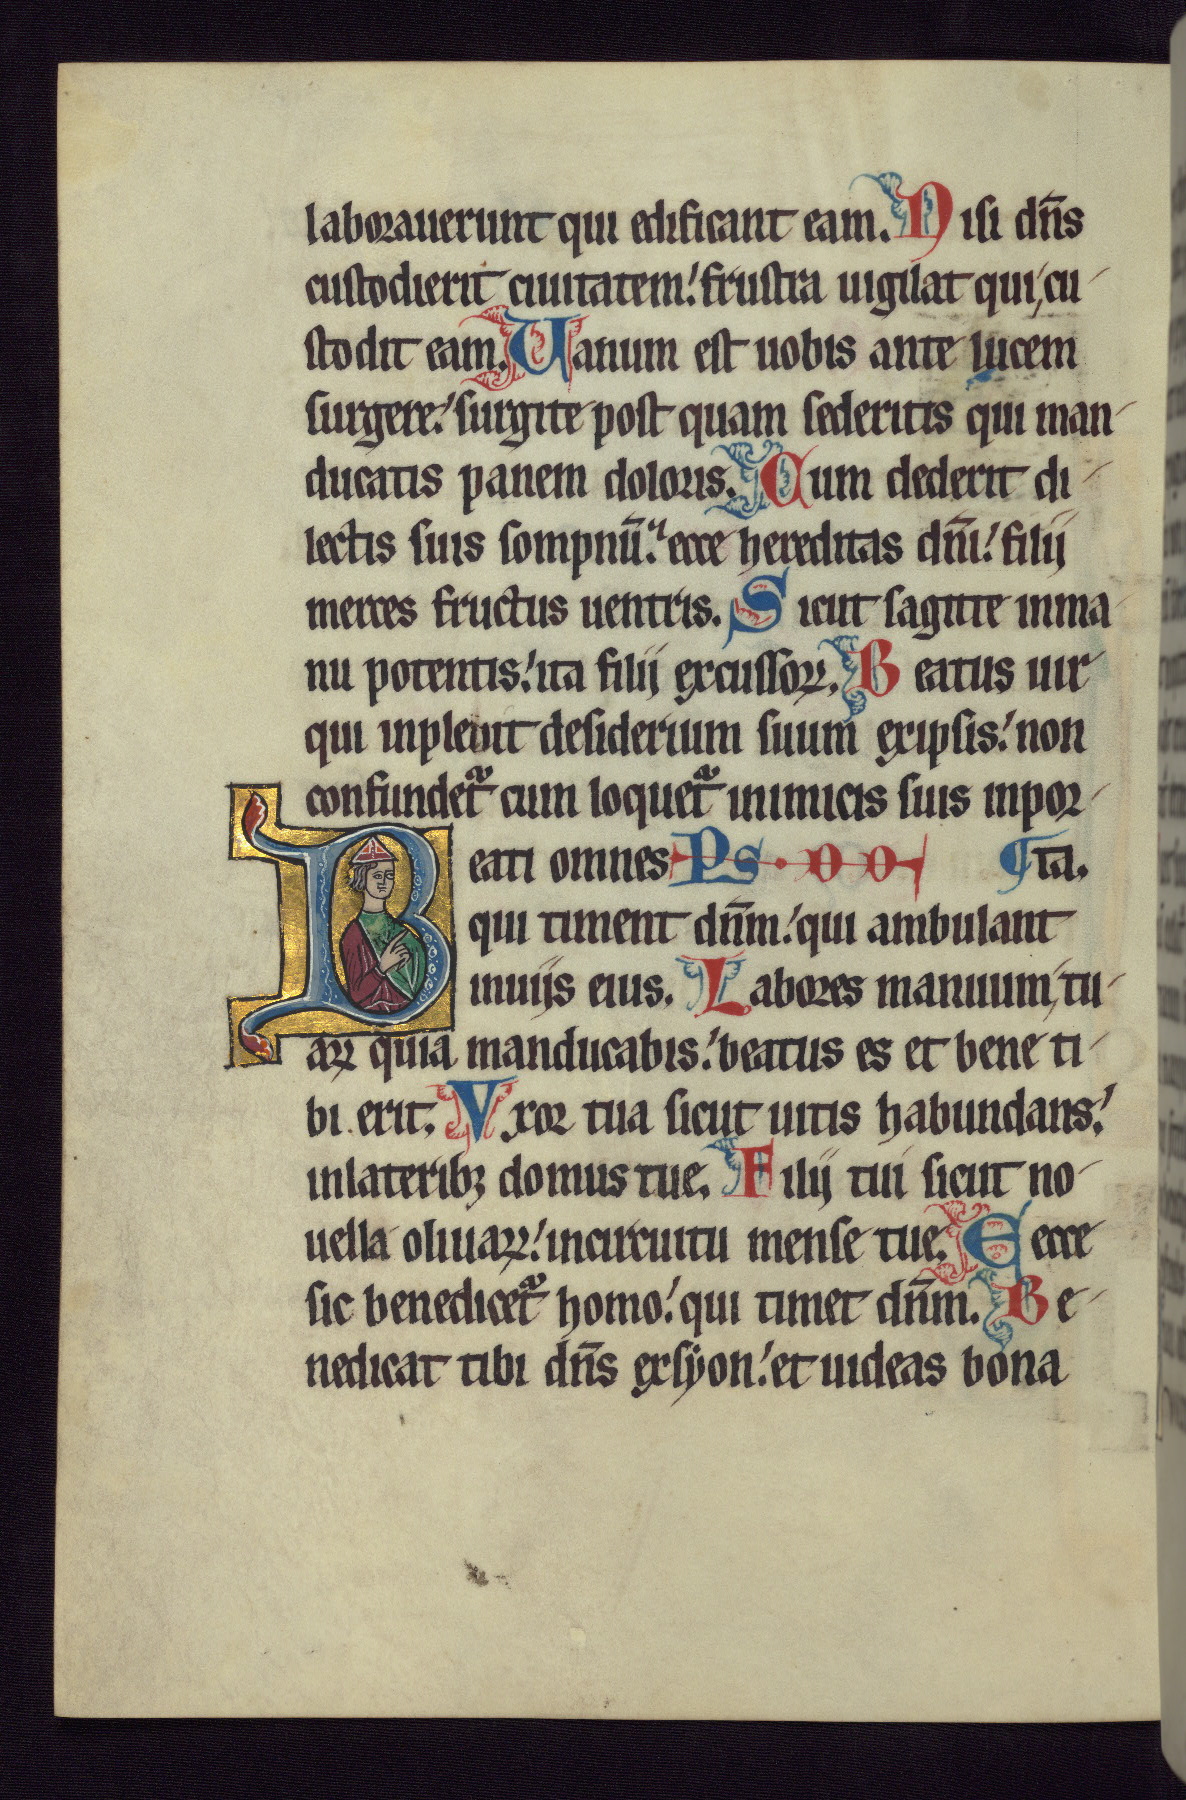 laborauerunt qui edificant eam. Nisi dn̄s
custodierit ciuitatem! frustra uigilat qui cu-
stodit eam. Uanum est uobis ante lucem
surgere! surgite post quam sederitis qui man-
ducatis panem doloris. Cum dederit di-
lectis suis sompnū. ecce hereditas dn̄i! filij
merces fructus uentris. Sicut sagitte inma
nu potentis! ita filij excussoꝝ. Beatus uir
qui inpleuit desiderium suum exipsis! non
confundet᷑ cum loquet᷑ inimicis suis inpor-
Beati omnes Ps. ¶ta.
qui timent dn̄m! qui ambulant
inuijs eius. Labores manuum tu-
aꝝ quia manducabis! beatus es et bene ti-
bi erit. Vxor tua sicut uitis habundans!
inlateribꝫ domus tue. Filij tui sicut no-
uella oliuaꝝ! incircuitu mense tue. Eecce
sic benedicet᷑ homo! qui timet dn̄m. Be-
nedicat tibi dn̄s exsyon! et uideas bona